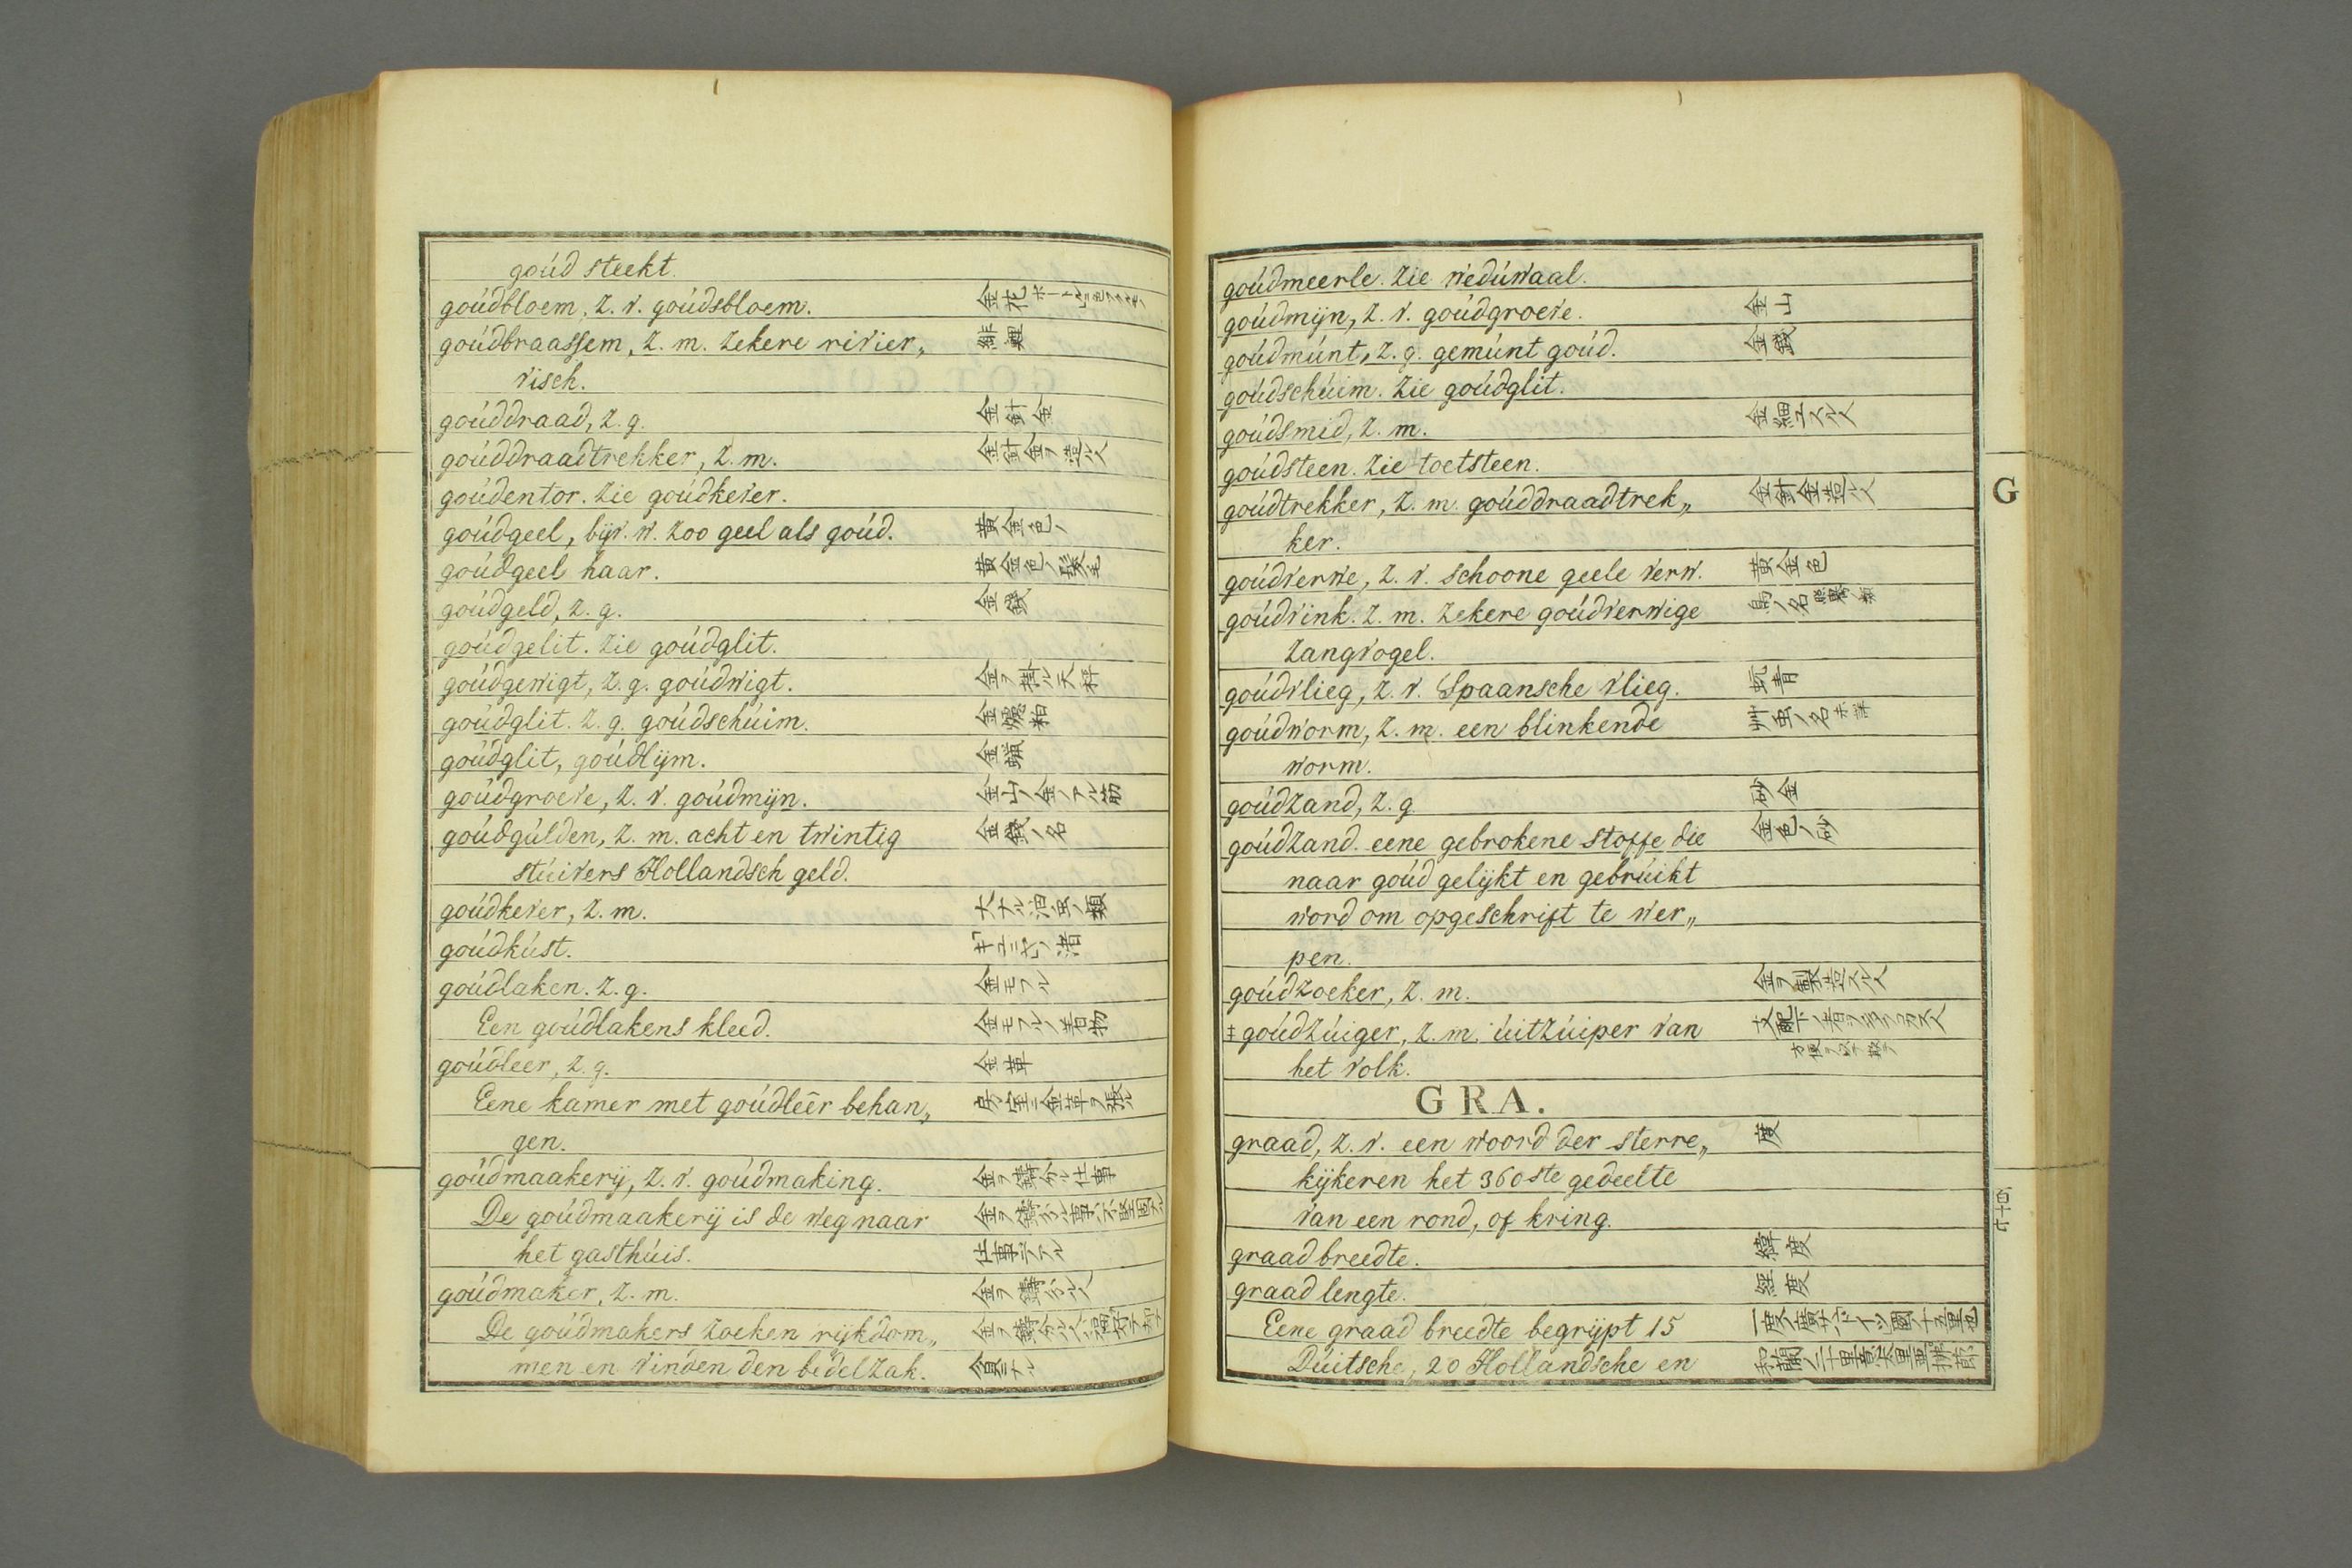 goúd steekt.
goúdbloem, z. v. goúdsbloem. 金花
goúdbraassem, z. m. zekere rivier„ 緋鯉
visch.
goúddraad, z. g. 金針金
goúddraadtrekker, z. m. 金針金ヲ造ル人
goúdentor. zie goúdkever.
goúdgeel, bijv. w. zoo geel als goúd. 黄金色ノ
goúdgeel haar. 黄金色ノ髪毛
goúdgeld, z. g. 金錢
goúdgelit. zie goúdglit.
goúdgewigt, z. g. goúdwigt. 金ヲ掛ル天秤
goúdglit. z. g. goúdschúim.
goúdglit, goúdlijm. 金
goúdgroeve, z. v. goúdmijn. 金山ノ金ノアル筋
goúdgúlden, z. m. acht en twintig 金錢ノ名
stúivers Hollandsch geld.
goúdkever, z. m. 大ナル泊虫ノ類
goúdkúst.
goúdlaken. z. g. 金モフル
Een goúdlakens kleed. 金モフルノ着物
goúdleer, z. g. 金革
Eene kamer met goúdleêr behan„ 房室ニ金革ヲ張ル
gen.
goúdmaakerij, z. v. goúdmaking. 金ヲ鑄分ル仕事
De goúdmaakerij is de weg naar 金ヲ鑄分ル事ハ不堅固ナル
het gasthúis. 仕事デアル
goúdmaker, z. m. 金ヲ鑄分ル人
De goúdmakers zoeken rijkdom„ 金ヲ鑄分ル人ハ
men en vinden den bedelzak. 貪ニナル
goúdmeerle. zie wedúwaal.
goúdmijn, z. v. goúdgroeve. 金山
goúdmúnt, z. g. gemúnt goúd. 金錢
goúdschúim. zie goúdglit.
goúdsmid, z. m. 金細工スル人
goúdsteen. zie toetsteen.
goúdtrekker, z. m. goúddraadtrek„ 金針金造ル人
ker.
goúdverwe, z. v. schoone geele verw. 黄金色
goúdvink. z. m. zekere goúdverwige 鳥ノ名
zangvogel.
goúdvlieg, z. v. Spaansche vlieg. 芫青
goúdworm, z. m. een blinkende 艸虫ノ名
worm.
goúdzand, z. g. 砂金
goúdzand. eene gebrokene stoffe die 金色ノ砂
naar goúd gelijkt en gebrúikt
word om opgeschrift te wer„
pen.
goúdzoeker, z. m. 金ヲ製造スル人
‡ goúdzúiger, z. m. úitzúiper van
het volk.
GRA.
graad, z. v. een woord der sterre„ 度
kijkeren het 360ste gedeelte
van een rond, of kring.
graad breedte. 緯度
graad lengte. 經度
Eene graad breedte begrijpt 15
Dúitsche, 20 Hollandsche en
G